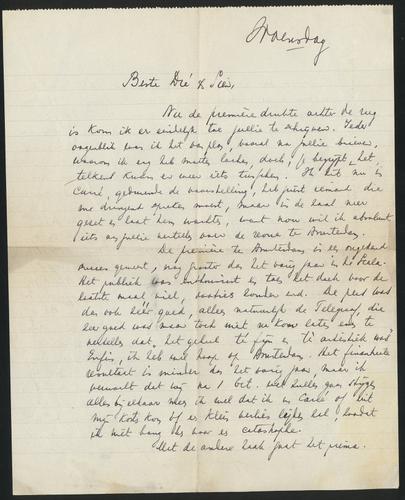 Woensdag
Beste Dré & Sien,
Nu de première drukte achter de rug
is kom ik er eindelijk toe jullie te schrijven. Ieder
oogenblik was ik het van plan, vooral na jullie brieven,
waarom ik erg heb moeten lachen, doch, je begrijpt, het
telkens kwam er weer iets tusschen. Ik zit nu in
Carré, gedurende de voorstelling, heb juist iemand die
me dringend spreken moest, maar in de zaal neer
gezet en laat hem wachten, want nu wil ik absoluut
iets aan jullie vertellen over de revue te Amsterdam.
De première te Amsterdam is een ongekend
succes geweest, nog grooter dan het vorig jaar in de Scala.
Het publiek was enthousiast en toen het doek voor de
laatste maal viel, bravo's zonder eind. De pers was
dan ook zeer goed, alleen natuurlijk de Telegraaf, die
zeer goed was maar toch niet na kon laten even te
vertellen dat het geheel te fijn en te artistiek was!
Enfin, ik heb veel hoop op Amsterdam. Het financieele
resultaat is minder dan het vorig jaar, maar ik
verwacht dat wij na 1 Oct. wel zullen gaan stijgen
alles bij elkaar meen ik wel dat ik in Carré of uit
mijn kosten kom of er klein verlies lijden zal, zoodat
ik niet bang ben voor een catastrophe.
Met de andere zaak gaat het prima.